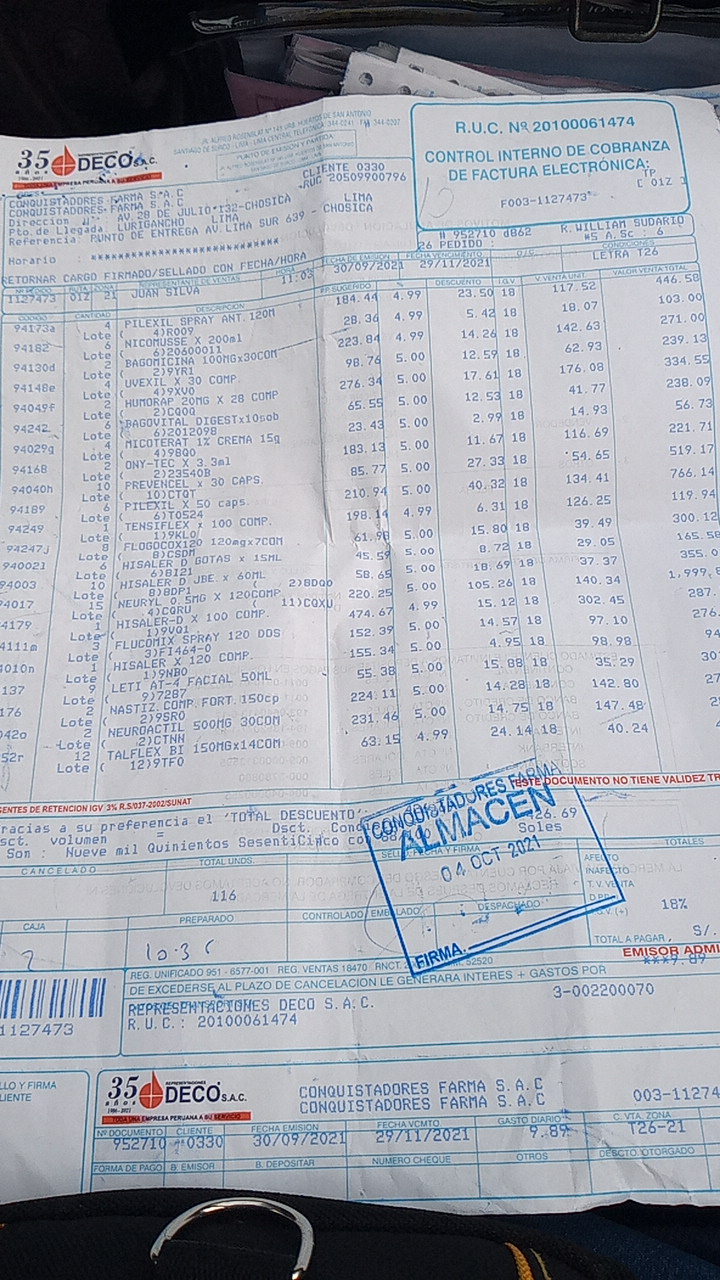 35 años
1986-2021
DECO S.A.C.
TODA UNA EMPRESA PERUANA A SU SERVICIO
JR. ALFRED ROSENBLAT Nº 145 URB. HUERTOS DE SAN ANTONIO
SANTIAGO DE SURCO - LIMA - LIMA CENTRAL TELEFONICA: 344-0241
PUNTO DE EMISIÓN Y PARTIDA:
R.U.C. Nº 20100061474
CONTROL INTERNO DE COBRANZA
DE FACTURA ELECTRÓNICA:
TP
F003-1127473
[ 01Z ]
CONQUISTADORES FARMA S.A.C
CONQUISTADORES FARMA S.A.C
CLIENTE 0330
RUC 20509900796
Direccion
AV.28 DE JULIO 132-CHOSICA LIMA
Pto.de Llegada: LURIGANCHO LIMA CHOSICA
Referencia: PUNTO DE ENTREGA AV.LIMA SUR 639 -
Horario : **************************
RETORNAR CARGO FIRMADO/SELLADO CON FECHA/HORA
N 952710 d862
R.WILLIAM SUDARIO
26 PEDIDO :
WS A.Sc : 6
FECHA DE EMISIÓN
FECHA VENCIMIENTO
CONDICIONES
30/09/2021 29/11/2021 LETRA T26
REPRESENTANTE DE VENTAS
HORA
1127473 01Z 21 JUAN SILVA 11:03
CÓDIGO CANTIDAD DESCRIPCIÓN P.P. SUGERIDO % DESCUENTO I.G.V V.VENTA UNIT. VALOR VENTA TOTAL
94173a 4 PILEXIL SPRAY ANT.120M 184.44 4.99 23.50 18 117.52 446.58
Lote ( 4)R009
94182 6 NICOMUSSE X 200ml 28.36 4.99 5.42 18 18.07 103.00
Lote ( 6)20600011
94130d 2 BAGOMICINA 100MGx30COM 223.84 4.99 14.26 18 142.63 271.00
Lote ( 2)9YR1
94148e 4 UVEXIL X 30 COMP. 98.76 5.00 12.59 18 62.93 239.13
Lote ( 4)9XV0
94049f 2 HUMORAP 20MG X 28 COMP 276.34 5.00 17.61 18 176.08 334.55
Lote ( 2)CQ0Q
94242 6 BAGOVITAL DIGESTx10sob 65.55 5.00 12.53 18 41.77 238.09
Lote ( 6)2012098
94029g 4 MICOTERAT 1% CREMA 15g 23.43 5.00 2.99 18 14.93 56.73
Lote ( 4)98Q0
94168 2 ONY-TEC X 3.3ml 183.13 5.00 11.67 18 116.69 221.71
Lote ( 2)23540B
94040h 10 PREVENCEL x 30 CAPS. 85.77 5.00 27.33 18 54.65 519.17
Lote ( 10)CTQT
94189 6 PILEXIL X 50 caps. 210.94 5.00 40.32 18 134.41 766.14
Lote ( 6)T0524
94249 1 TENSIFLEX x 100 COMP. 198.14 4.99 6.31 18 126.25 119.94
Lote ( 1)9KL0
94247j 8 FLOGDCOX120 120mgx7COM 61.98 5.00 15.80 18 39.49 300.12
Lote ( 8)CSDM
940021 6 HISALER D GOTAS x 15ML 45.59 5.00 8.72 18 29.05
Lote ( 6)BI21
94003 10 HISALER D JBE. x 60ML 58.65 5.00 18.69 18 37.37
Lote ( 8)8DP1 ( 2)8DQ0
94017 15 NEURYL 0.5MG X 120COMP 220.25 5.00 105.26 18 140.34
Lote ( 4)CQRU ( 11)CQXU
4179 1 HISALER-D X 100 COMP. 474.67 4.99 15.12 18 302.45
Lote ( 1)9VQ1
4111m 3 FLUCOMIX SPRAY 120 DDS 152.39 5.00 14.57 18 97.10
Lote ( 3)FI464-0
4010n 1 HISALER X 120 COMP. 155.34 5.00 4.95 18 98.98
Lote ( 1)9NB0
137 9 LETI AT-4 FACIAL 50ML 55.38 5.00 15.88 18 35.29
Lote ( 9)7287
176 2 NASTIZ.COMP.FORT.150cp 224.11 5.00 14.28 18 142.80
Lote ( 2)9SR0
042o 2 NEUROACTIL 500MG 30COM 231.46 5.00 14.75 18 147.48
Lote ( 2)CTNN
52r 12 TALFLEX BI 150MGx14COM 63.15 4.99 24.14 18 40.24
Lote ( 12)9TF0
ENTES DE RETENCION IGV 3% R.S/037-2002/SUNAT
ESTE DOCUMENTO NO TIENE VALIDEZ TR
racias a su preferencia el 'TOTAL DESCUENTO
sct. volumen = Dsct.
426.69
Son : Nueve mil Quinientos SesentiCinco co
Soles
CONQUISTADORES FARMA
ALMACEN
04 OCT 2021
FIRMA
CANCELADO
TOTAL UNDS.
116
SELLO, FECHA Y FIRMA
TOTALES
AFECTO
INAFECTO
T.V. VENTA
I.G.V. (+) 18%
TOTAL A PAGAR S/.
CAJA
PREPARADO
CONTROLADO
EMBALADO
DESPACHADO
2
EMISOR ADMI
***9.89
REG. UNIFICADO 951 - 6577-001 REG. VENTAS 18470
DE EXCEDERSE AL PLAZO DE CANCELACION LE GENERARA INTERES + GASTOS POR
REPRESENTACIONES DECO S.A.C.
3-002200070
R.U.C.: 20100061474
1127473
LLO Y FIRMA
LIENTE
35 años
1986-2021
REPRESENTACIONES
DECO S.A.C.
TODA UNA EMPRESA PERUANA A SU SERVICIO
CONQUISTADORES FARMA S.A.C
CONQUISTADORES FARMA S.A.C
003-11274
Nº DOCUMENTO CLIENTE FECHA EMISION FECHA VCMTO GASTO DIARIO C. VTA. ZONA
952710 0330 30/09/2021 29/11/2021 9.89 T26-21
FORMA DE PAGO B. EMISOR B. DEPOSITAR NUMERO CHEQUE OTROS DESCTO OTORGADO